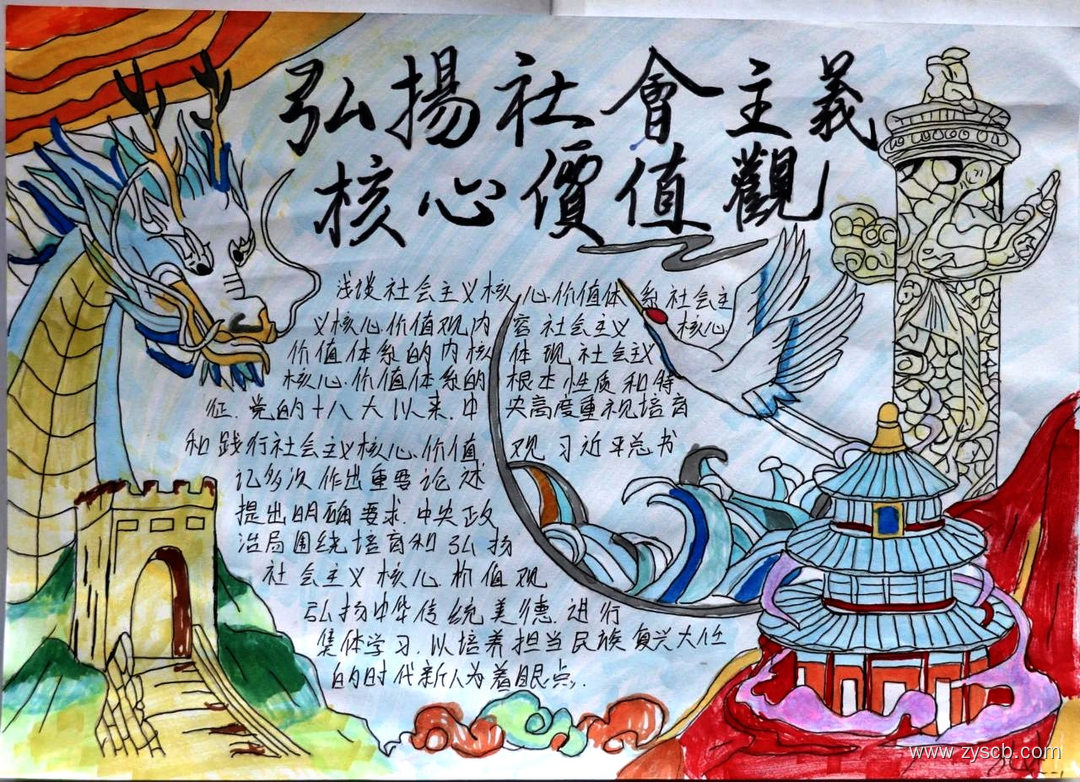 弘揚社會主義
核心價值觀
浅谈社会主义核心价值体系社会主
义核心价值观内容社会主义核心
价值体系的内核体现社会主义
核心价值体系的根本性质和特
征.党的十八大以来.中央高度重视培育
和践行社会主义核心价值观习近平总书
记多次作出重要论述
提出明确要求.中央政
治局围绕培育和弘扬
社会主义核心价值观
弘扬中华传统美德.进行
集体学习.以培养担当民族复兴大任
的时代新人为着眼点.
www.zyscb.com